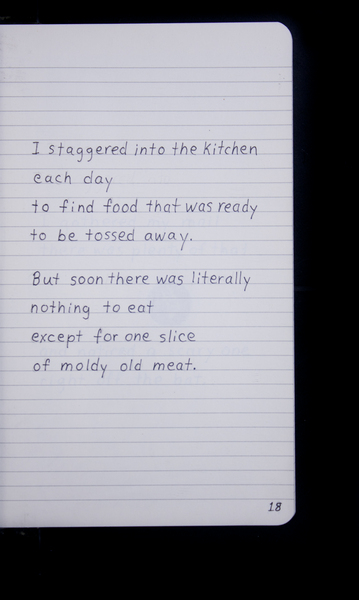 I staggered into the kitchen
each day
to find food that was ready
to be tossed away.
But soon there was literally
nothing to eat
except for one slice
of moldy old meat.
18